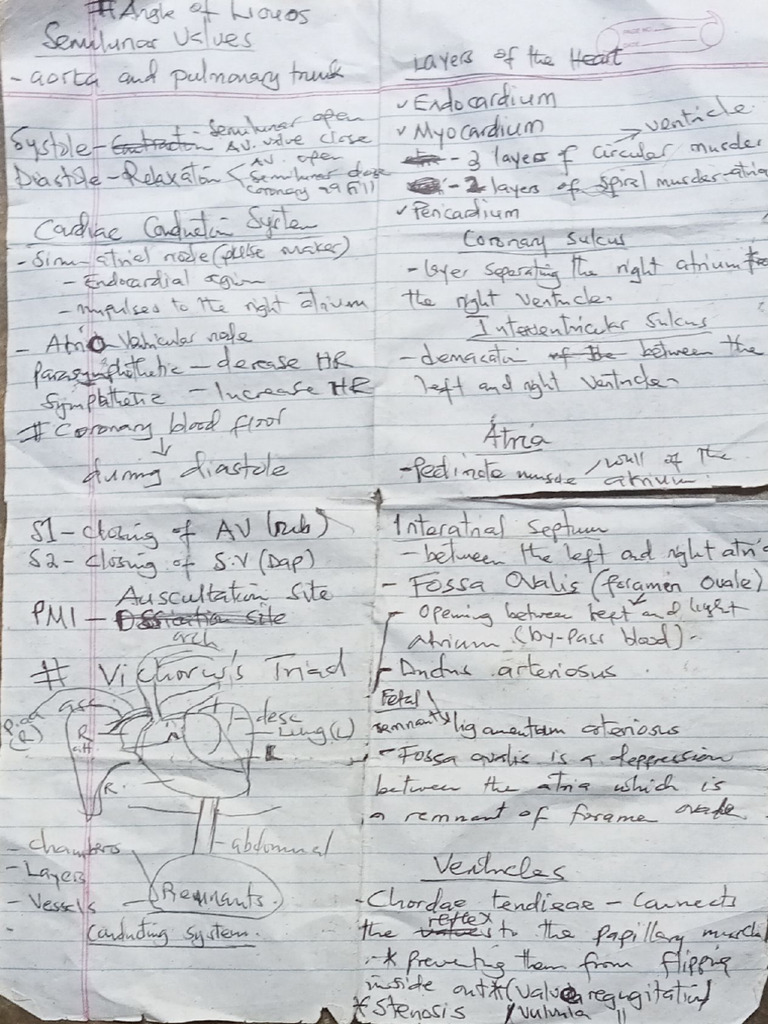 # Angle of Louos
Semilunar Valves
- aorta and pulmonary trunk
Systole - Contraction - Semilunar open
A.V. valve close
Diastole - Relaxation < A.V. open
Semilunar close
coronary
Cardiac Conduction System
- Sinu-atrial node (pulse maker)
- Endocardial
- Impulses to the right atrium
- Atrio Ventricular node
parasymphathetic - decrease HR
Symphathetic - Increase HR
# Coronary blood floor
↓
during diastole
S1 - closing of AV (Lub)
S2 - closing of S.V (Dap)
Auscultation Site
PMI - site
# Vichorus's Triad
arch
desc
Lung (L)
R
att
R.
abdominal
- chambers
- Layers
- Vessels
Remnants.
- Conducting system.
Layers of the Heart
✓ Endocardium
✓ Myocardium
- 3 layers of circular muscles → ventricle
- 2 layers of spiral muscles - atria
✓ Pericardium
Coronary Sulcus
- layer separating the right atrium from
the right ventricle.
Interventricular Sulcus
- demacation of the between the
left and right ventricles
Atria
- Pectinate muscle / wall of the
atrium.
Interatrial Septum
- between the left and right atria
- Fossa Ovalis (foramen ovale)
- Opening between left and right
atrium (by-pass blood).
- Ductus arteriosus
Fetal
remnants ligamentum arteriosus
- Fossa ovalis is a depression
between the atria which is
a remnant of forame ovale
Ventricles
- Chordae tendieae - Connects
the valves to the papillary muscle
* preventing them from flipping
inside out * (valve regugitation)
* Stenosis / Vulvula "